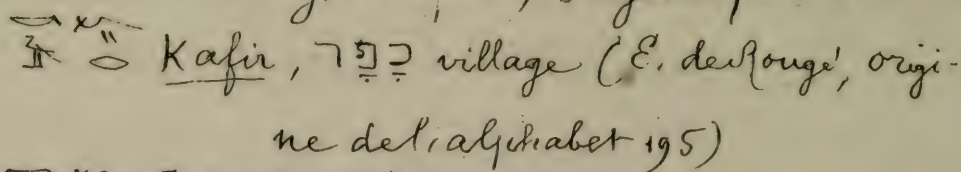 Kafir, כָּפָר village (E. de Rougé, origi-
ne de l'alphabet 195)